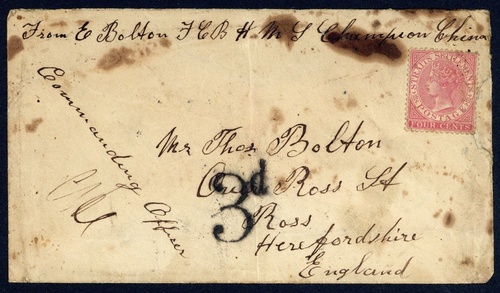 From E Bolton H M S Champion China
STRAITS SETTLEMENTS
POSTAGE
FOUR CENTS
Commanding Officer
Mr Thos Bolton
Ross St
3d
Ross
Herefordshire
England